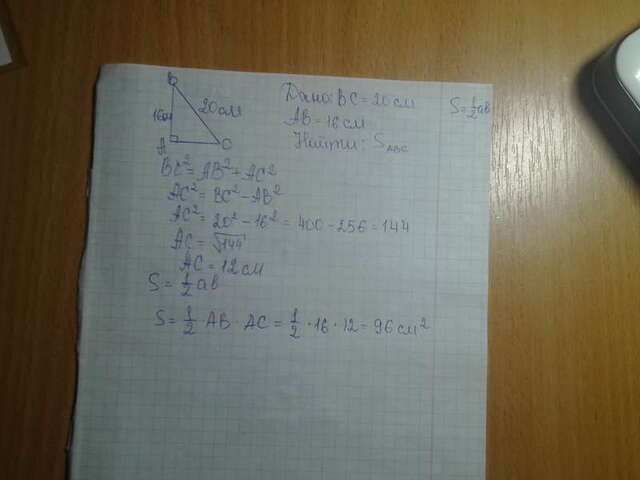 B
16см
20см
A
C
Дано: BC = 20 см
AB = 16 см
Найти: S_ABC
S = 1/2 ab
BC² = AB² + AC²
AC² = BC² - AB²
AC² = 20² - 16² = 400 - 256 = 144
AC = √144
AC = 12 см
S = 1/2 ab
S = 1/2 · AB · AC = 1/2 · 16 · 12 = 96 см²